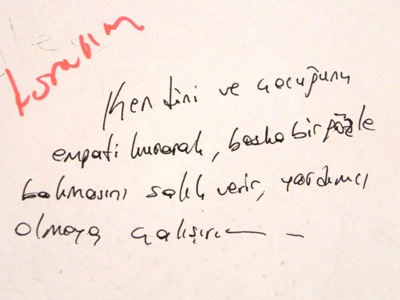 Kendini ve çocuğunu
empati kurarak, başka bir gözle
bakmasını salık verir, yardımcı
olmaya çalışırım